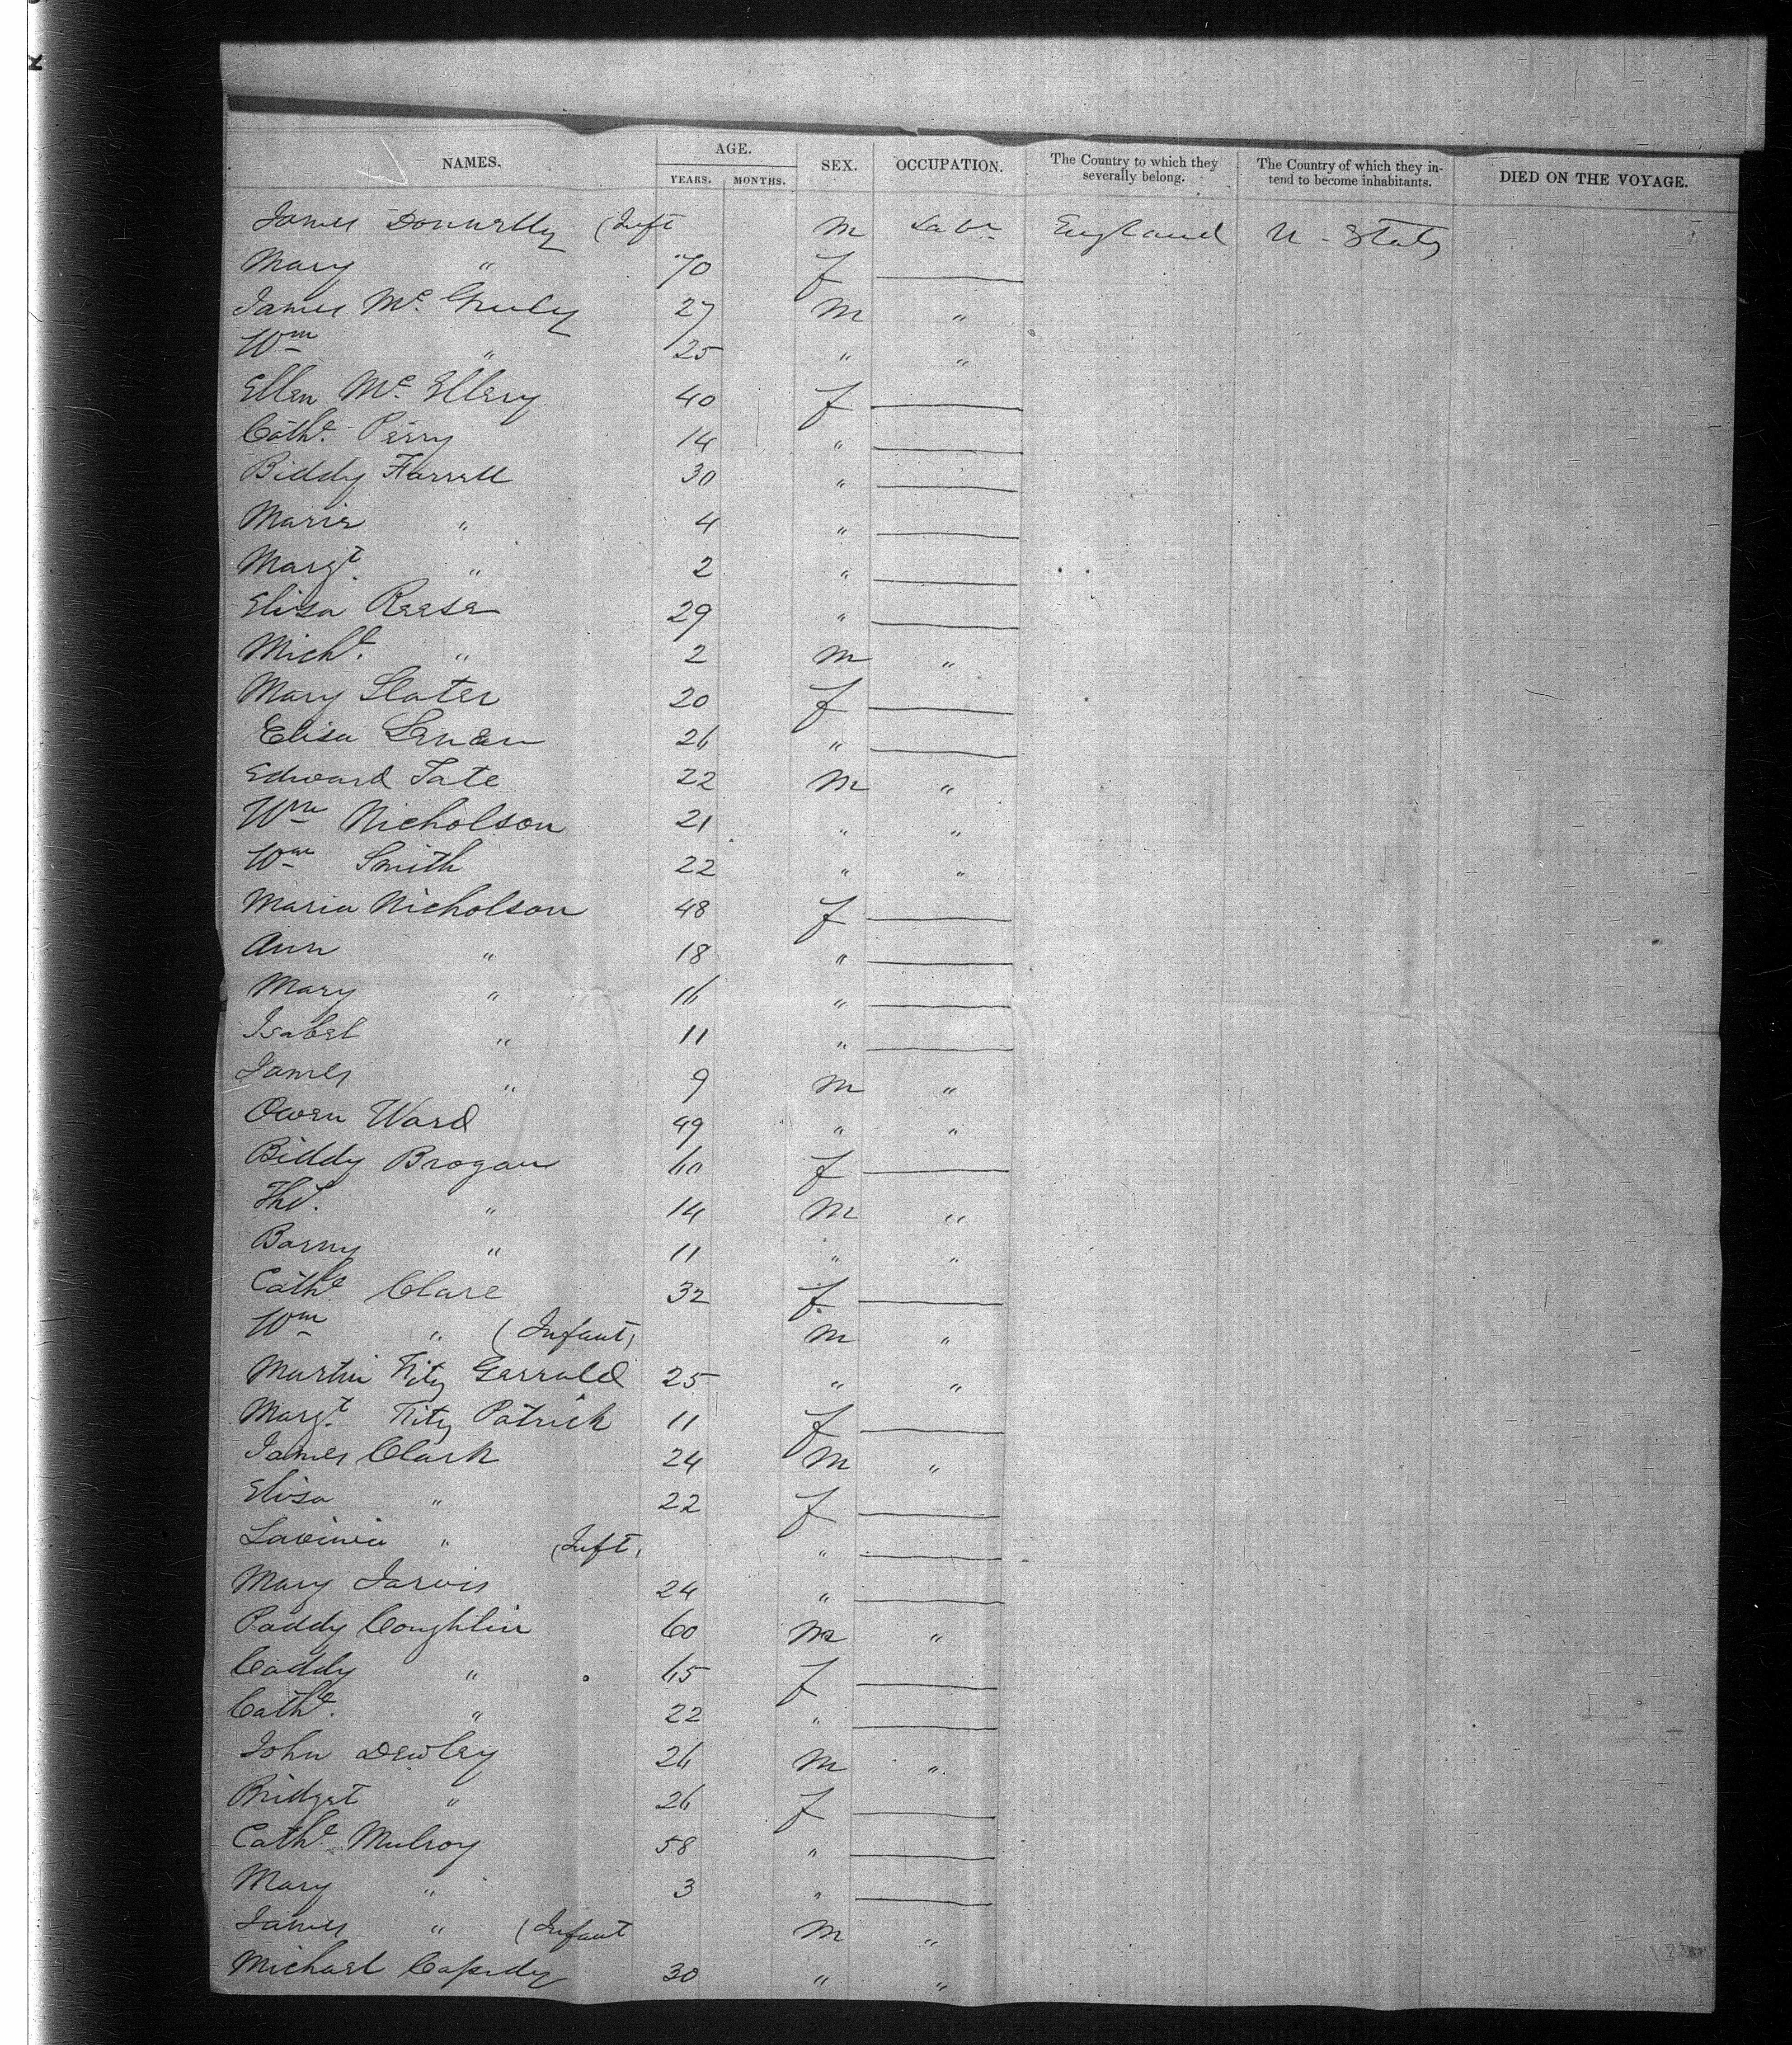 NAMES. AGE. YEARS. MONTHS. SEX. OCCUPATION. The Country to which they severally belong. The Country of which they intend to become inhabitants. DIED ON THE VOYAGE.
James Donnelly (Inft m Labr England U. States
Mary " 70 f
James Mc 27 m "
Wm " 25 " "
Ellen Mc Ellery 40 f
Cathe. Perry 14 "
Biddy Farrell 30 "
Maria " 4 "
Margt. " 2 "
Eliza Reese 29 "
Michl. " 2 m "
Mary Slater 20 f
Elisa 26 "
Edward Tate 22 m "
Wm Nicholson 21 " "
Wm Smith 22 " "
Maria Nicholson 48 f
Ann " 18 "
Mary " 16 "
Isabel " 11 "
James " 9 m "
Owen Ward 49 " "
Biddy Brogan 60 f
Ths. " 14 m "
Barny " 11 " "
Cathe. Clare 32 f
Wm " (Infant) m "
Martin Fitz Gerrald 25 " "
Margt. Fitz Patrick 11 f
James Clark 24 m "
Elisa " 22 f
Lavinia " (Inft. "
Mary Jarvis 24 "
Paddy Coughlin 60 m "
Caddy " 65 f
Cathe. " 22 "
John Dewley 26 m "
Bridget " 26 f
Cathe. Mulroy 58 "
Mary " 3 "
James " (Infant m "
Michael Cassidy 30 " "